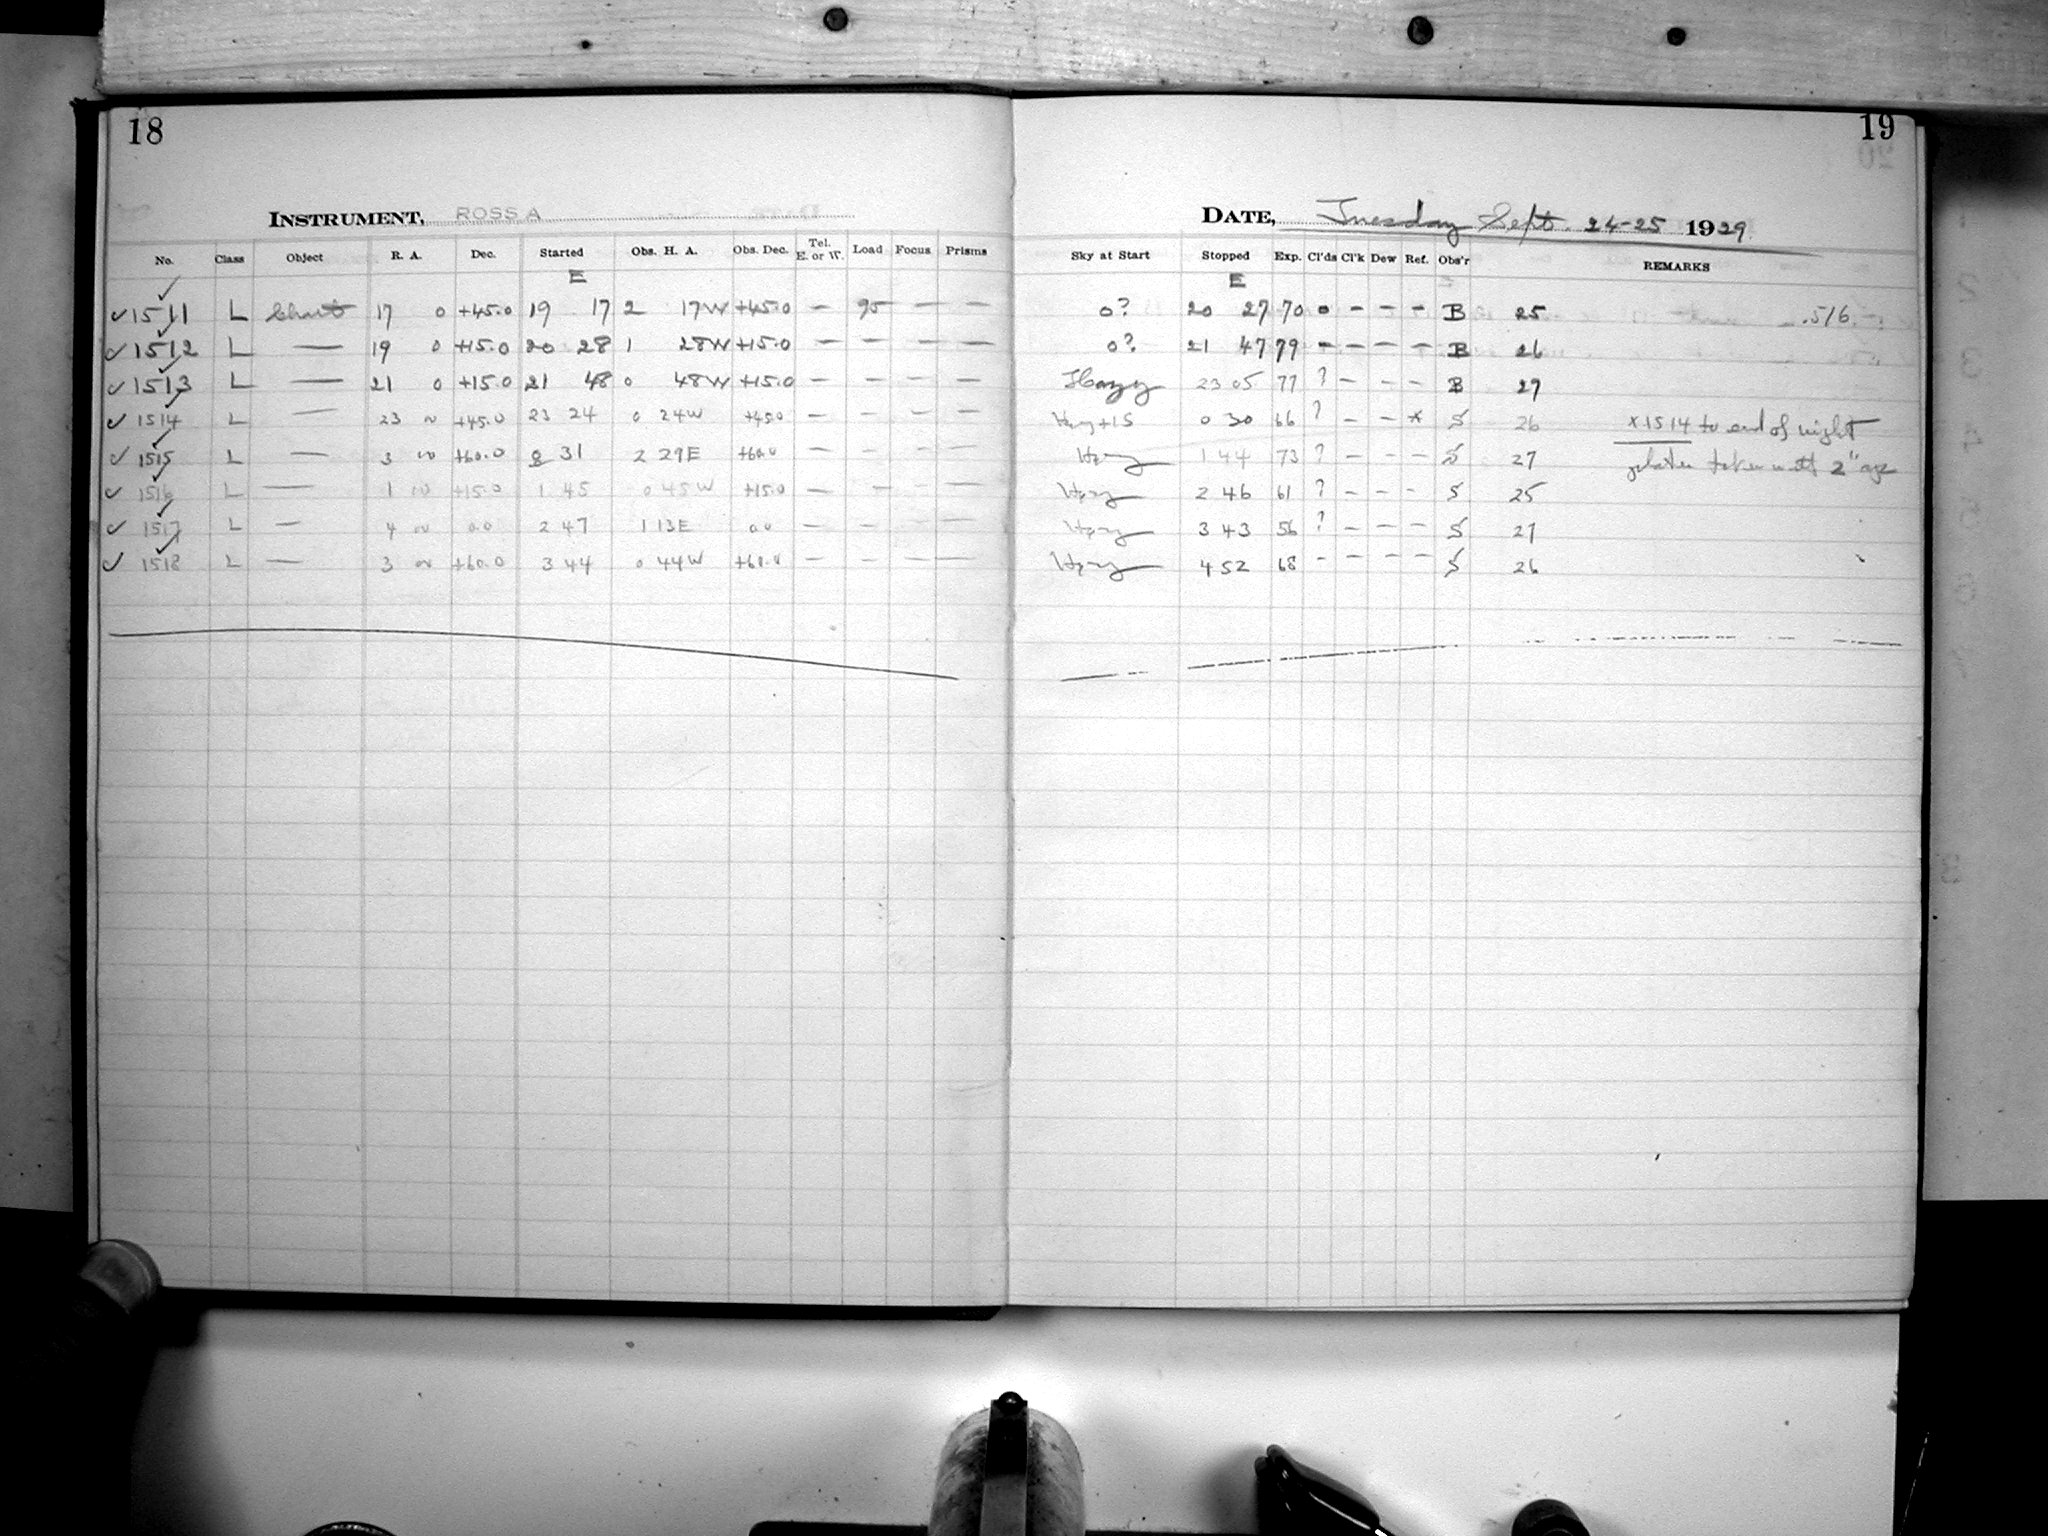 18
INSTRUMENT, ROSS A
No. Class Object R. A. Dec. Started Obs. H. A. Obs. Dec. Tel. E. or W. Load Focus Prisms
E
✓ 1511 L Chart 17 0 +45.0 19 17 2 17W +45.0 — 95 — —
✓ 1512 L — 19 0 +15.0 20 28 1 28W +15.0 — — — —
✓ 1513 L — 21 0 +15.0 21 48 0 48W +15.0 — — — —
✓ 1514 L — 23 +45.0 23 24 0 24W +45.0 — — — —
✓ 1515 L — 3 +60.0 0 31 2 29E +60.0 — — — —
✓ 1516 L — 1 +15.0 1 45 0 45W +15.0 — — — —
✓ 1517 L — 4 0.0 2 47 1 13E 0.0 — — — —
✓ 1518 L — 3 +60.0 3 44 0 44W +60.0 — — — —
19
DATE, Tuesday Sept. 24-25 1929
Sky at Start Stopped Exp. Cl'ds Cl'k Dew Ref. Obs'r REMARKS
E
0? 20 27 70 0 — — — B 25 .516
0? 21 47 79 — — — — B 26
Hazy 23 05 77 ? — — — B 27
Hazy +15 0 30 66 ? — — * S 26 x 1514 to end of night
Hazy 1 44 73 ? — — — S 27 plates taken with 2" ap
Hazy 2 46 61 ? — — — S 25
Hazy 3 43 56 ? — — — S 27
Hazy 4 52 68 — — — — S 26